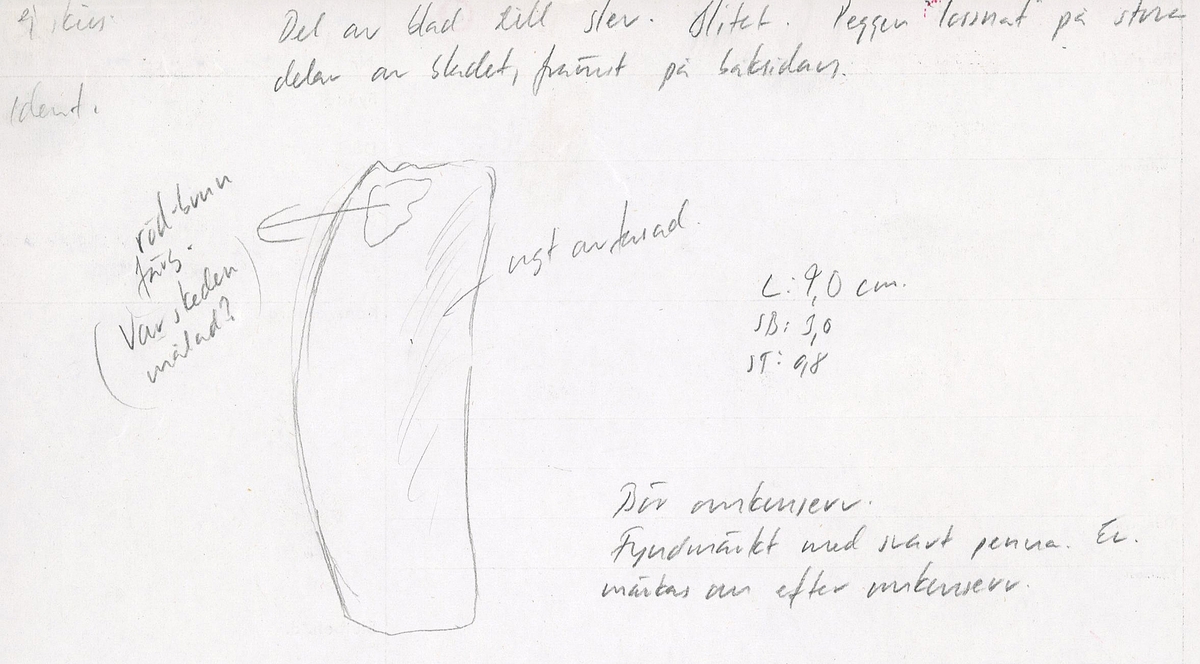 ej skiss
Del av blad till slev. Slitet. Peggen "lossnat" på stora
delar av bladet, främst på baksidan.
Ident.
röd-brun
färg.
(Var skeden
målad?)
L: 9,0 cm.
SB: 3,0
ST: 0,8
Bör omkonserv.
Fyndmärkt med svart penna. Ev.
märkas om efter omkonserv.